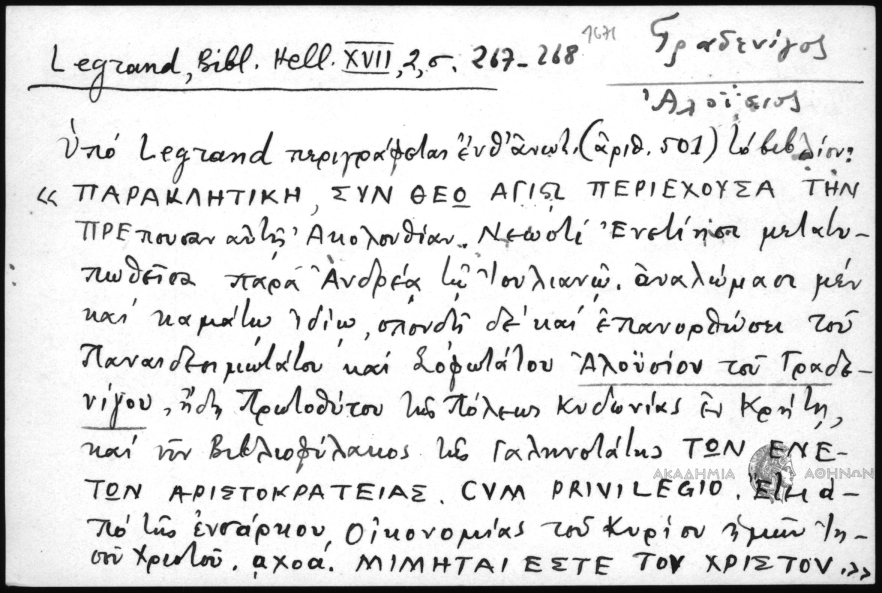 1671
Γραδενίγος
Legrand, Bibl. Hell. XVII, 2, σ. 267-268
Ἀλοΐσιος
Ὑπό Legrand περιγράφεται ἐνθ' ἀνωτ. (ἀριθ. 501) τό βιβλίον:
« ΠΑΡΑΚΛΗΤΙΚΗ, ΣΥΝ ΘΕΩ ΑΓΙΩ ΠΕΡΙΕΧΟΥΣΑ ΤΗΝ
ΠΡΕπουσαν αὐτῇ Ἀκολουθίαν. Νεωστί Ἐνετίησι μετατυ-
πωθεῖσα παρά Ἀνδρέα τῷ Ἰουλιανῷ. ἀναλώμασι μέν
καί καμάτῳ ἰδίῳ, σπουδῇ δέ καί ἐπανορθώσει τοῦ
Παναιδεσιμωτάτου καί Σοφωτάτου Ἀλοϋσίου τοῦ Γραδε-
νίγου, ἤδη Πρωτοθύτου τῆς Πόλεως Κυδωνίας ἐν Κρήτῃ,
καί νῦν Βιβλιοφύλακος τῆς Γαληνοτάτης ΤΩΝ ΕΝΕ-
ΤΩΝ ΑΡΙΣΤΟΚΡΑΤΕΙΑΣ. CVM PRIVILEGIO. Ἔτει ἀ-
πό τῆς ἐνσάρκου Οἰκονομίας τοῦ Κυρίου ἡμῶν Ἰη-
σοῦ Χριστοῦ. αχοά. ΜΙΜΗΤΑΙ ΕΣΤΕ ΤΟΥ ΧΡΙΣΤΟΥ.»
ΑΚΑΔΗΜΙΑ ΑΘΗΝΩΝ